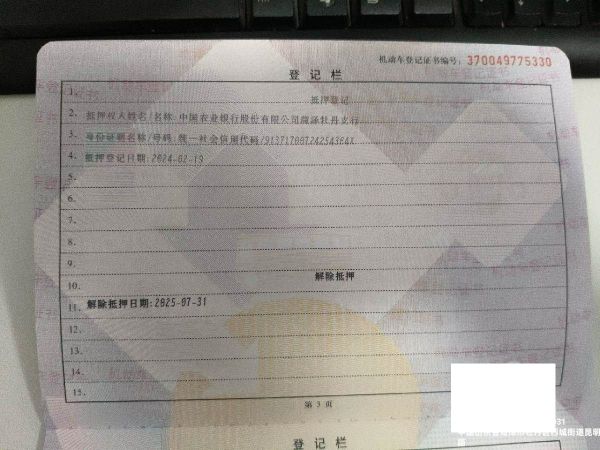 机动车登记证书编号：370049775330
登记栏
1.
抵押登记
2. 抵押权人姓名/名称:中国农业银行股份有限公司菏泽牡丹支行
3. 身份证明名称/号码:统一社会信用代码/91371700724254364X
4. 抵押登记日期:2024-02-19
5.
6.
7.
8.
9.
10. 解除抵押
11. 解除抵押日期:2025-07-31
12.
13.
14.
15.
第 3 页
登记栏